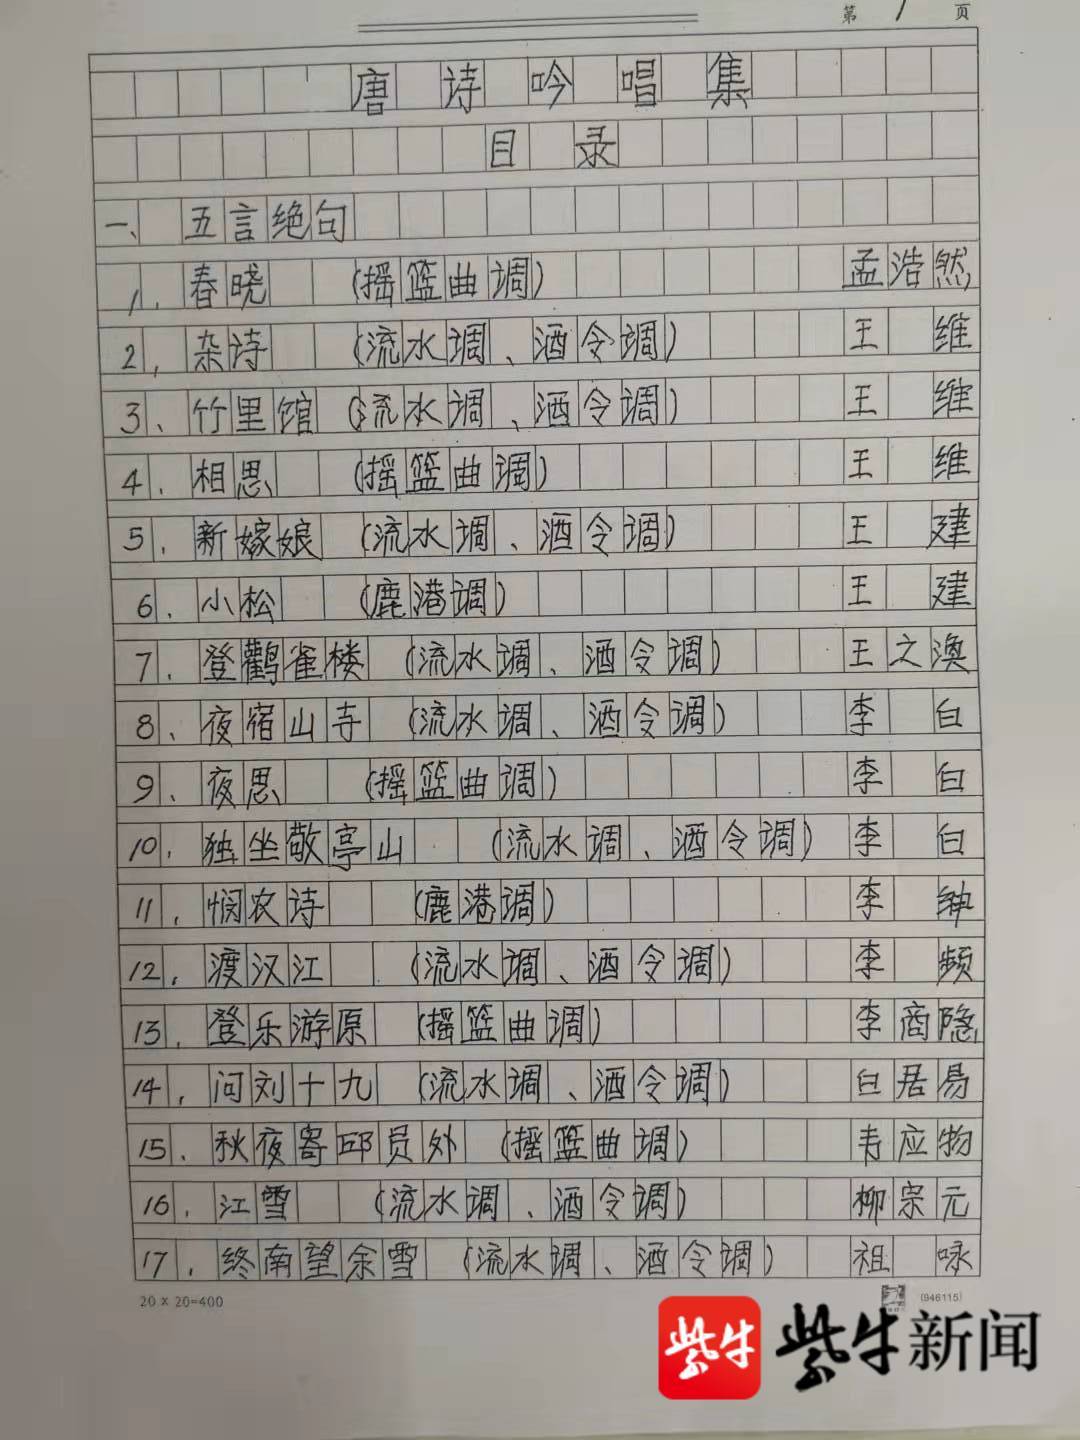 第 1 页
唐诗吟唱集
目录
一、五言绝句
1、春晓 (摇篮曲调) 孟浩然
2、杂诗 (流水调、酒令调) 王维
3、竹里馆 (流水调、酒令调) 王维
4、相思 (摇篮曲调) 王维
5、新嫁娘 (流水调、酒令调) 王建
6、小松 (鹿港调) 王建
7、登鹳雀楼 (流水调、酒令调) 王之涣
8、夜宿山寺 (流水调、酒令调) 李白
9、夜思 (摇篮曲调) 李白
10、独坐敬亭山 (流水调、酒令调) 李白
11、悯农诗 (鹿港调) 李绅
12、渡汉江 (流水调、酒令调) 李频
13、登乐游原 (摇篮曲调) 李商隐
14、问刘十九 (流水调、酒令调) 白居易
15、秋夜寄邱员外 (摇篮曲调) 韦应物
16、江雪 (流水调、酒令调) 柳宗元
17、终南望余雪 (流水调、酒令调) 祖咏
20×20=400 (946115)
紫牛 紫牛新闻